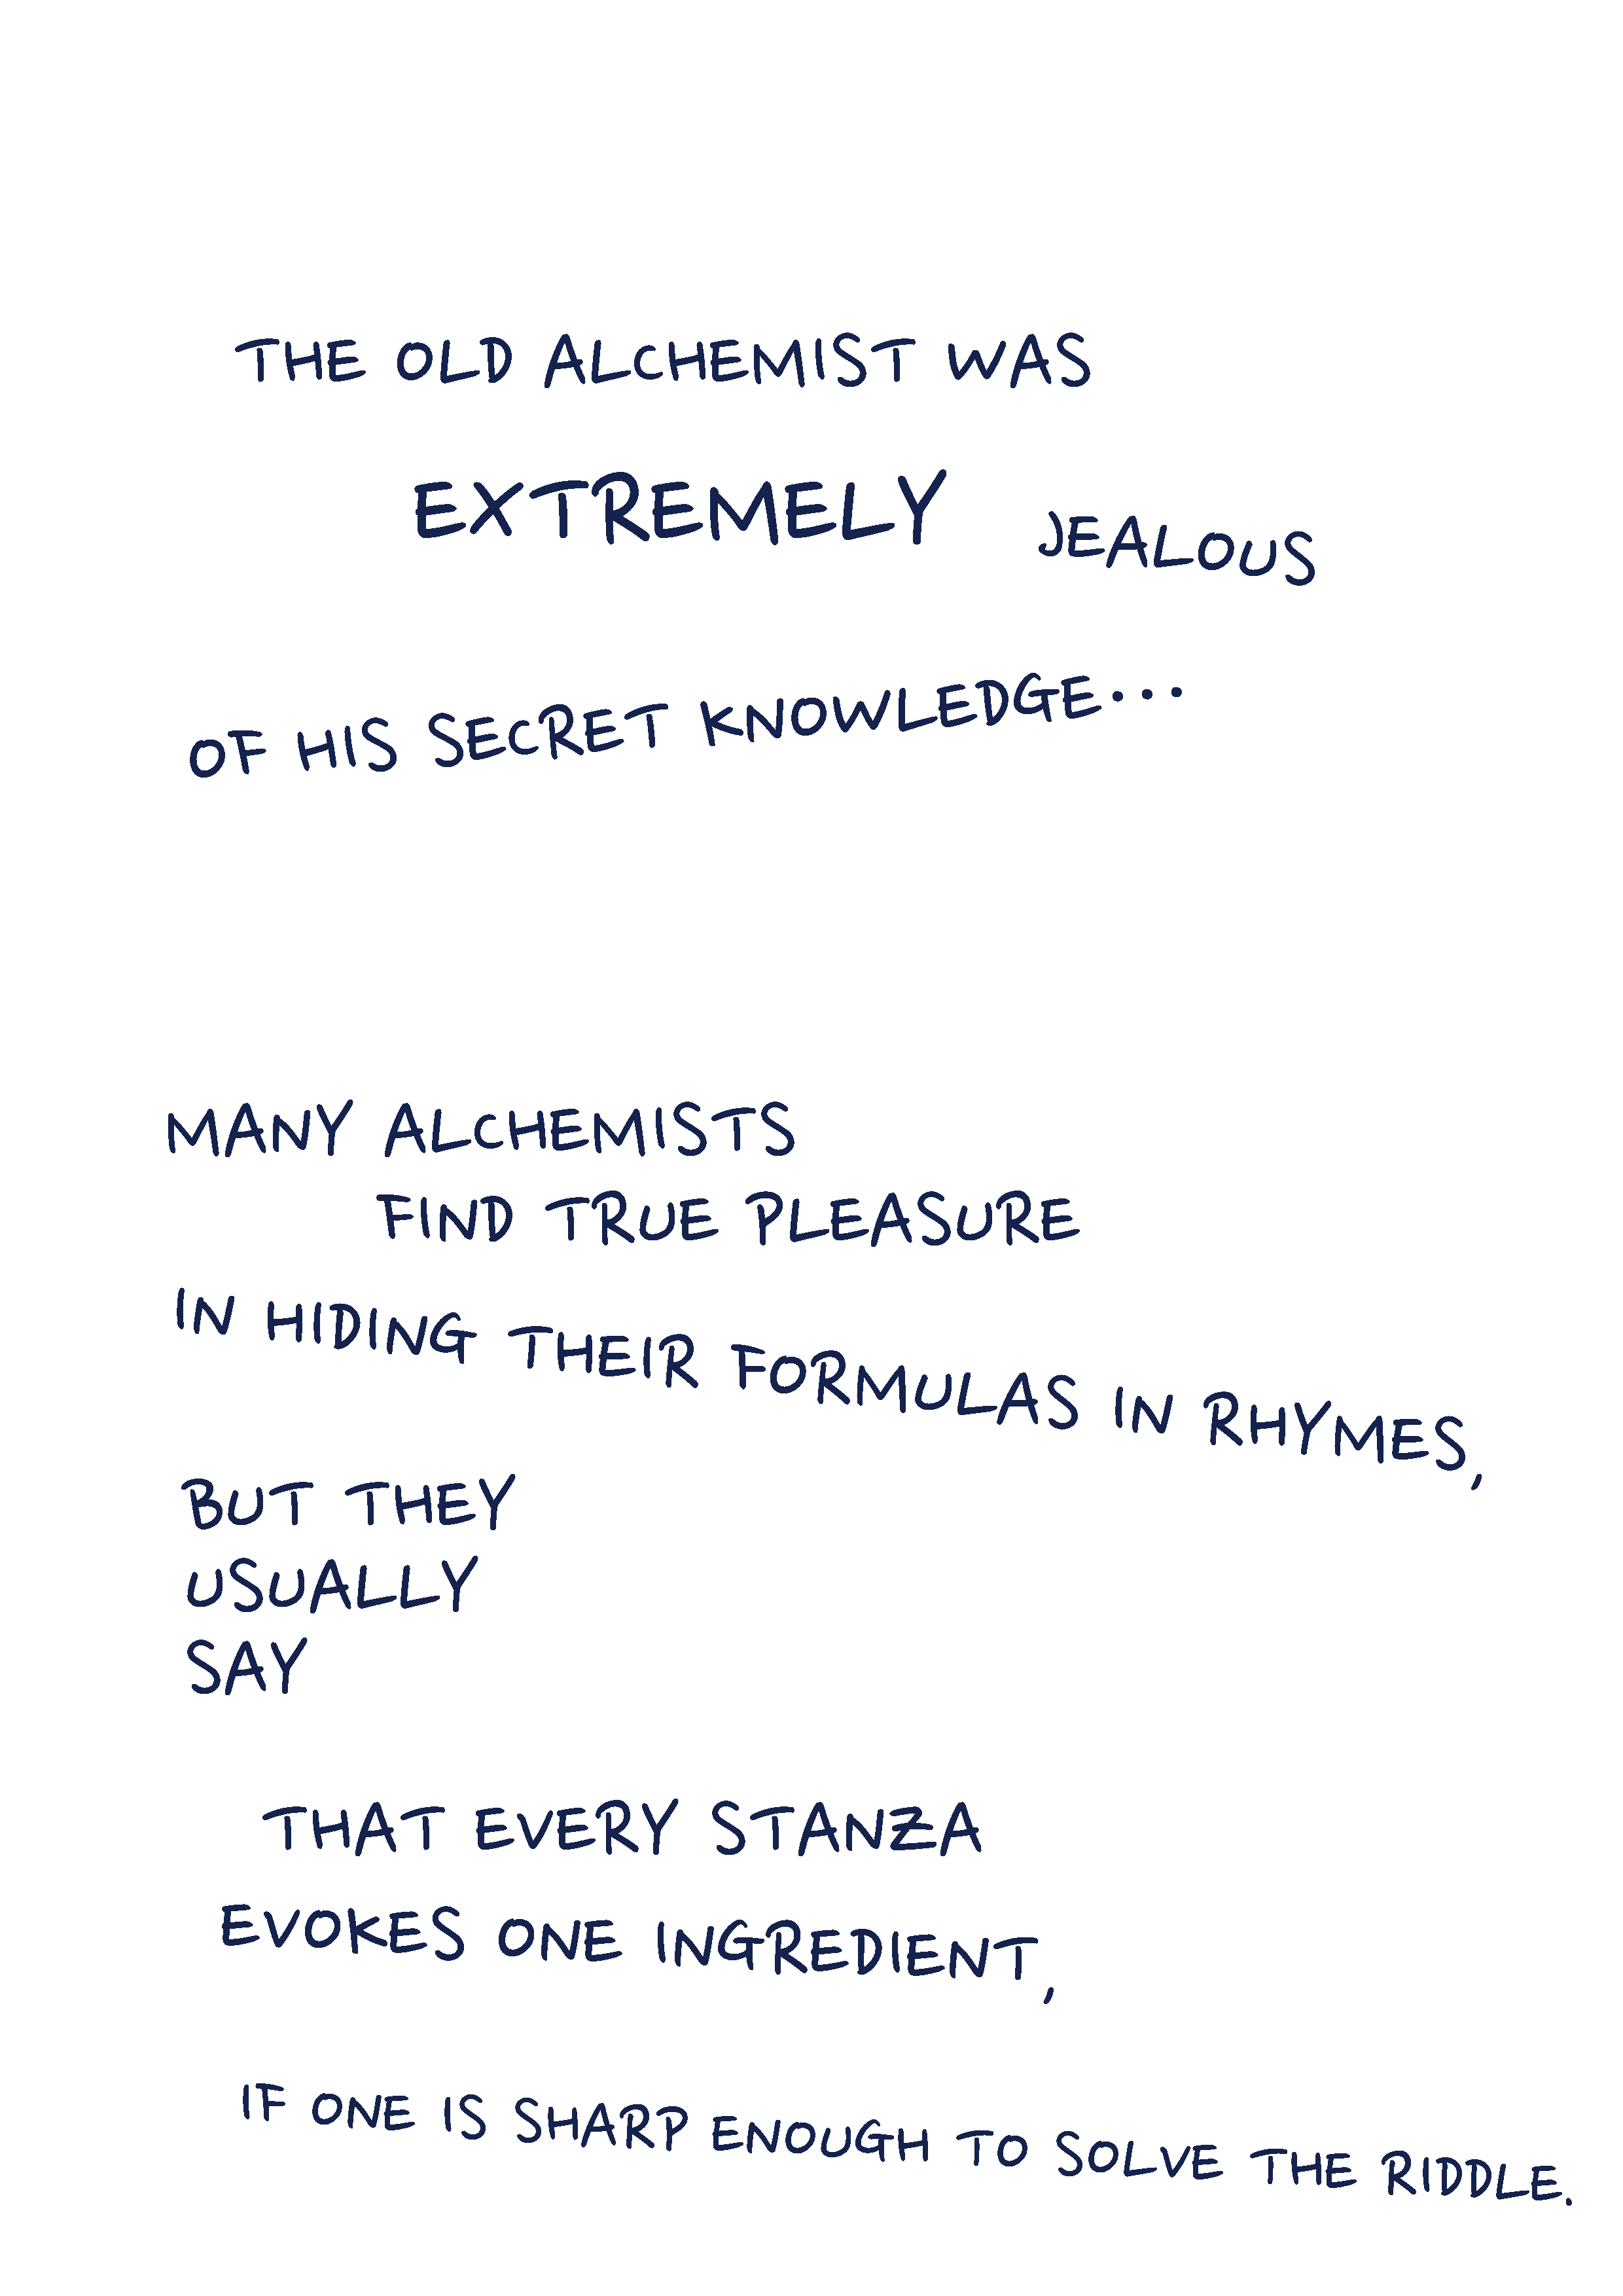 THE OLD ALCHEMIST WAS
EXTREMELY JEALOUS
OF HIS SECRET KNOWLEDGE...
MANY ALCHEMISTS
FIND TRUE PLEASURE
IN HIDING THEIR FORMULAS IN RHYMES,
BUT THEY
USUALLY
SAY
THAT EVERY STANZA
EVOKES ONE INGREDIENT,
IF ONE IS SHARP ENOUGH TO SOLVE THE RIDDLE.